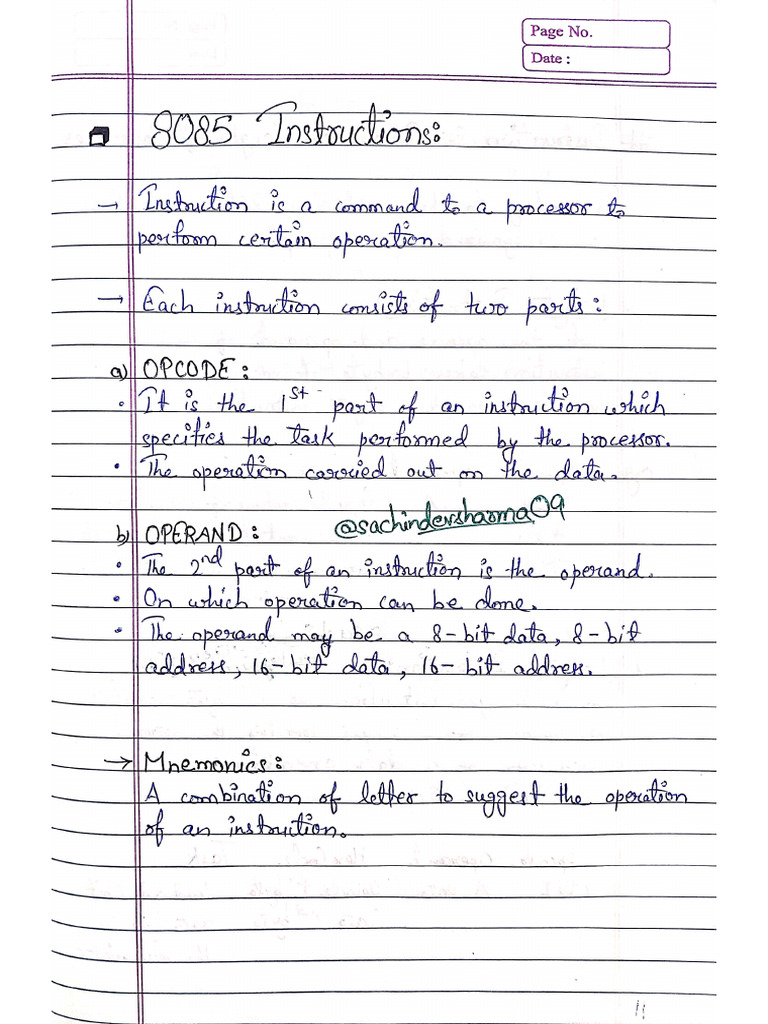 Page No.
Date :
8085 Instructions:
→ Instruction is a command to a processor to
perform certain operation.
→ Each instruction consists of two parts:
a) OPCODE:
• It is the 1st part of an instruction which
specifies the task performed by the processor.
• The operation carried out on the data.
@sachindersharma09
b) OPERAND:
• The 2nd part of an instruction is the operand.
• On which operation can be done.
• The operand may be a 8-bit data, 8-bit
address, 16-bit data, 16-bit address.
→ Mnemonics:
A combination of letter to suggest the operation
of an instruction.